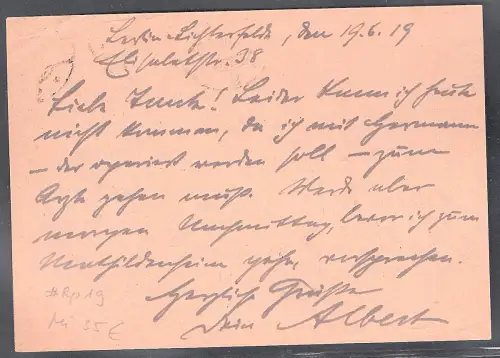 Berlin-Lichterfelde, den 19.6.19
Elisabethstr. 38
Liebe Tante! Leider kann ich heute
nicht kommen, da ich mit Hermann
– der operiert werden soll – zum
Arzte gehen muß. Werde aber
morgen Nachmittag, bevor ich zum
Mathildenheim gehe, vorsprechen.
Herzliche Grüße
Dein Albert
#Rp19
Mi 35€